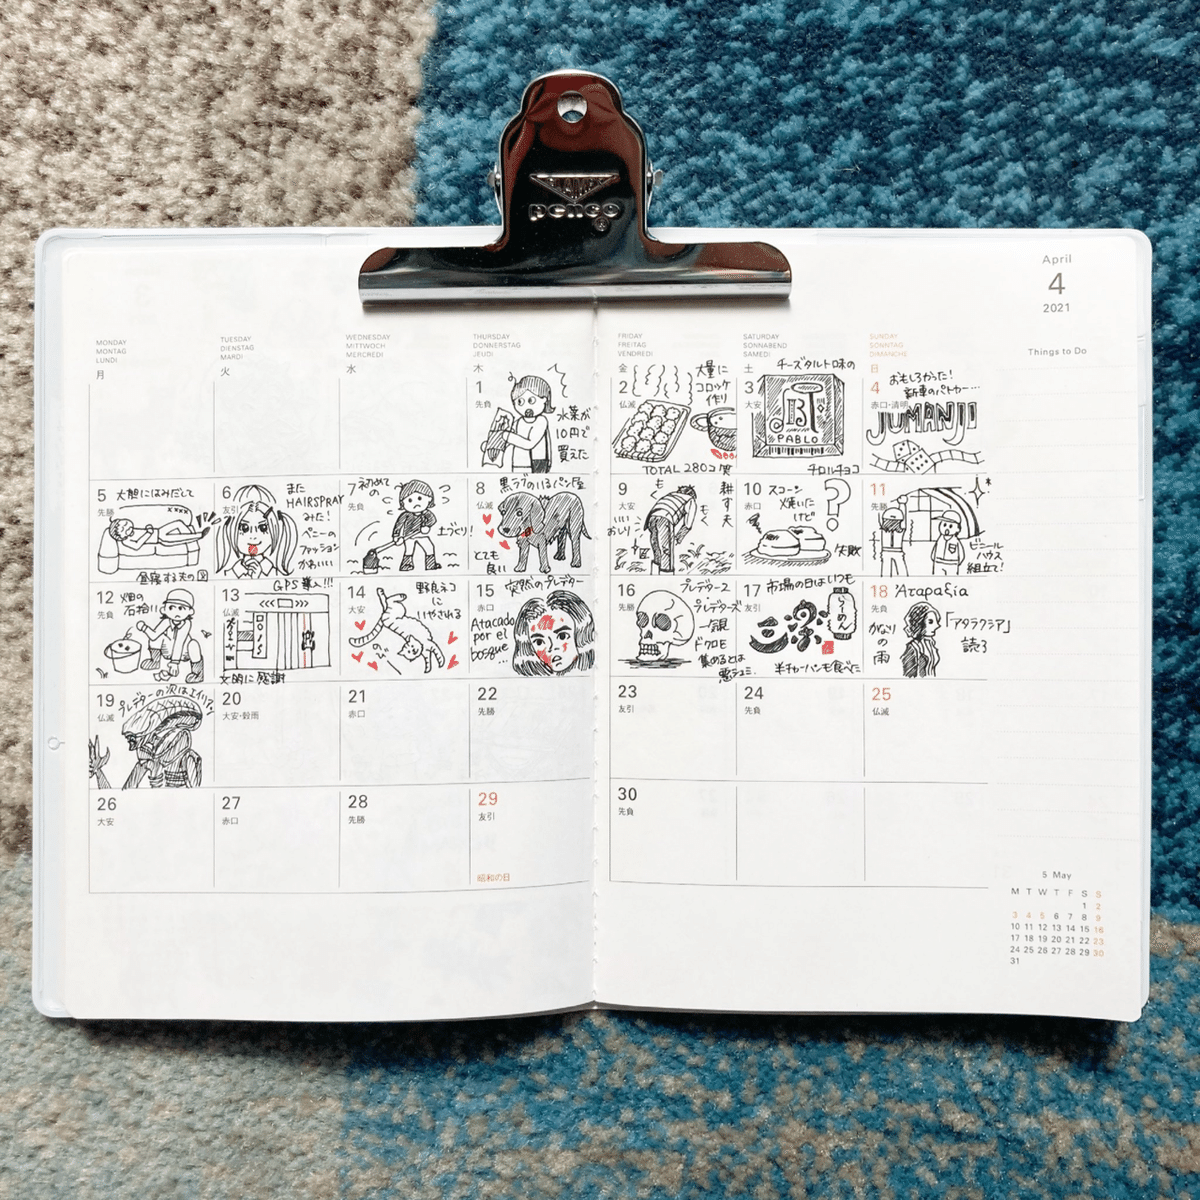 penco
April
4
2021
MONDAY
MONTAG
LUNDI
月
TUESDAY
DIENSTAG
MARDI
火
WEDNESDAY
MITTWOCH
MERCREDI
水
THURSDAY
DONNERSTAG
JEUDI
木
FRIDAY
FREITAG
VENDREDI
金
SATURDAY
SONNABEND
SAMEDI
土
SUNDAY
SONNTAG
DIMANCHE
日
Things to Do
1
先負
水菜が
10円で
買えた
2
仏滅
大量に
コロッケ
作り
TOTAL 280コ 笑
3
大安
チーズタルト味の
PABLO
チロルチョコ
4
赤口・清明
おもしろかった!
新車のパトカー…
JUMANJI
5
先勝
大胆にはみだして
昼寝する夫の図
6
友引
また
HAIRSPRAY
みた!
ペニーの
ファッション
かわいい
7
先負
初めて
の
土づくり!
8
仏滅
黒ラブのいるパン屋
とても
良い
9
大安
いい
おしり
も
く
も
く
耕す夫
10
赤口
スコーン
焼いた
けど
?
失敗
11
先勝
ビニール
ハウス
組立て!
12
友引
畑の
石拾い
13
仏滅
GPS導入!!!
文明に感謝
14
大安
野良ネコ
に
いやされる
のび
15
赤口
突然のプレデター
Atacado
por el
bosque
...
16
先勝
プレデター2
プレデターズ
一気見
ドクロを
集めるとは
悪シュミ.
17
友引
市場の日はいつも
三楽
らーめん
半チャーハンも食べた
18
先負
Ataraxia
「アタラクシア」
読了
かなり
の
雨
19
仏滅
プレデターの次はエイリアン
20
大安・穀雨
21
赤口
22
先勝
23
友引
24
先負
25
仏滅
26
大安
27
赤口
28
先勝
29
友引
昭和の日
30
先負
5 May
M T W T F S S
1 2
3 4 5 6 7 8 9
10 11 12 13 14 15 16
17 18 19 20 21 22 23
24 25 26 27 28 29 30
31